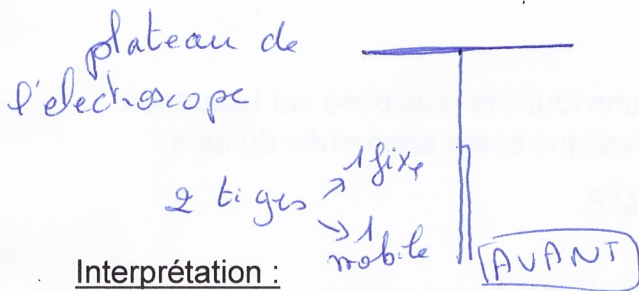 plateau de
l'electroscope
2 tiges → 1 fixe
→ 1 mobile
AVANT
Interprétation :